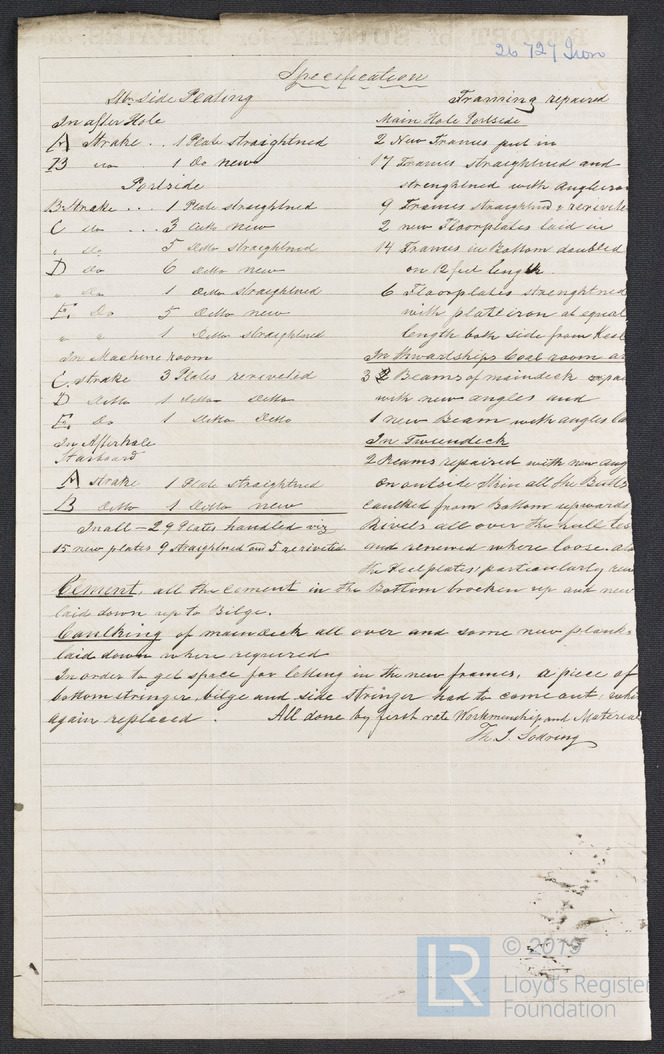 26727 Iron
Specification
Stb. side Plating
In after Hole
A Strake .. 1 Plate straightned
B do 1 Do new
Portside
B Strake ... 1 Plate straightned
C do ... 3 ditto new
" do 5 Ditto straightned
D do 6 Ditto new
" do 1 Ditto straightned
E. Do 5 Ditto new
" " 1 Ditto straightned
In Machine room
C. Strake 3 Plates reriveted
D Ditto 1 Ditto Ditto
E. Do 1 Ditto Ditto
In Afterhole
Starboard
A Strake 1 Plate straightned
B Ditto 1 Ditto new
In all - 29 Plates handled viz
15 new plates 9 straightned and 5 reriveted
Framing repaired
Main Hole Portside
2 New Frames put in
17 Frames straightned and
strenghtned with angleiron
9 Frames straightned & rerivete
2 new Floorplates laid in
14 Frames in Bottom doubled
on 12 feet length
6 Floorplates strenghtned
with plateiron at equal
length both side from Keel
In thwardships Coal room an
3 Beams of maindeck repai
with new angles and
1 new Beam with angles la
In Tweendeck
2 Beams repaired with new ang
on outside Skin all the Butts
caulked from Bottom upwards
Rivets all over the hull tes
and renewed where loose. al
the Keelplates, particularly
Cement, all the cement in the Bottom brocken up and new
laid down up to Bilge.
Caulking of maindeck all over and some new planks
laid down where required
In order to get space for letting in the new frames, a piece of
bottom stringer, bilge and side stringer had to come out, whi
again replaced. All done by first rate Workmenship and Material
Th. J. Sodring
© 2019
LR
Lloyd's Register
Foundation